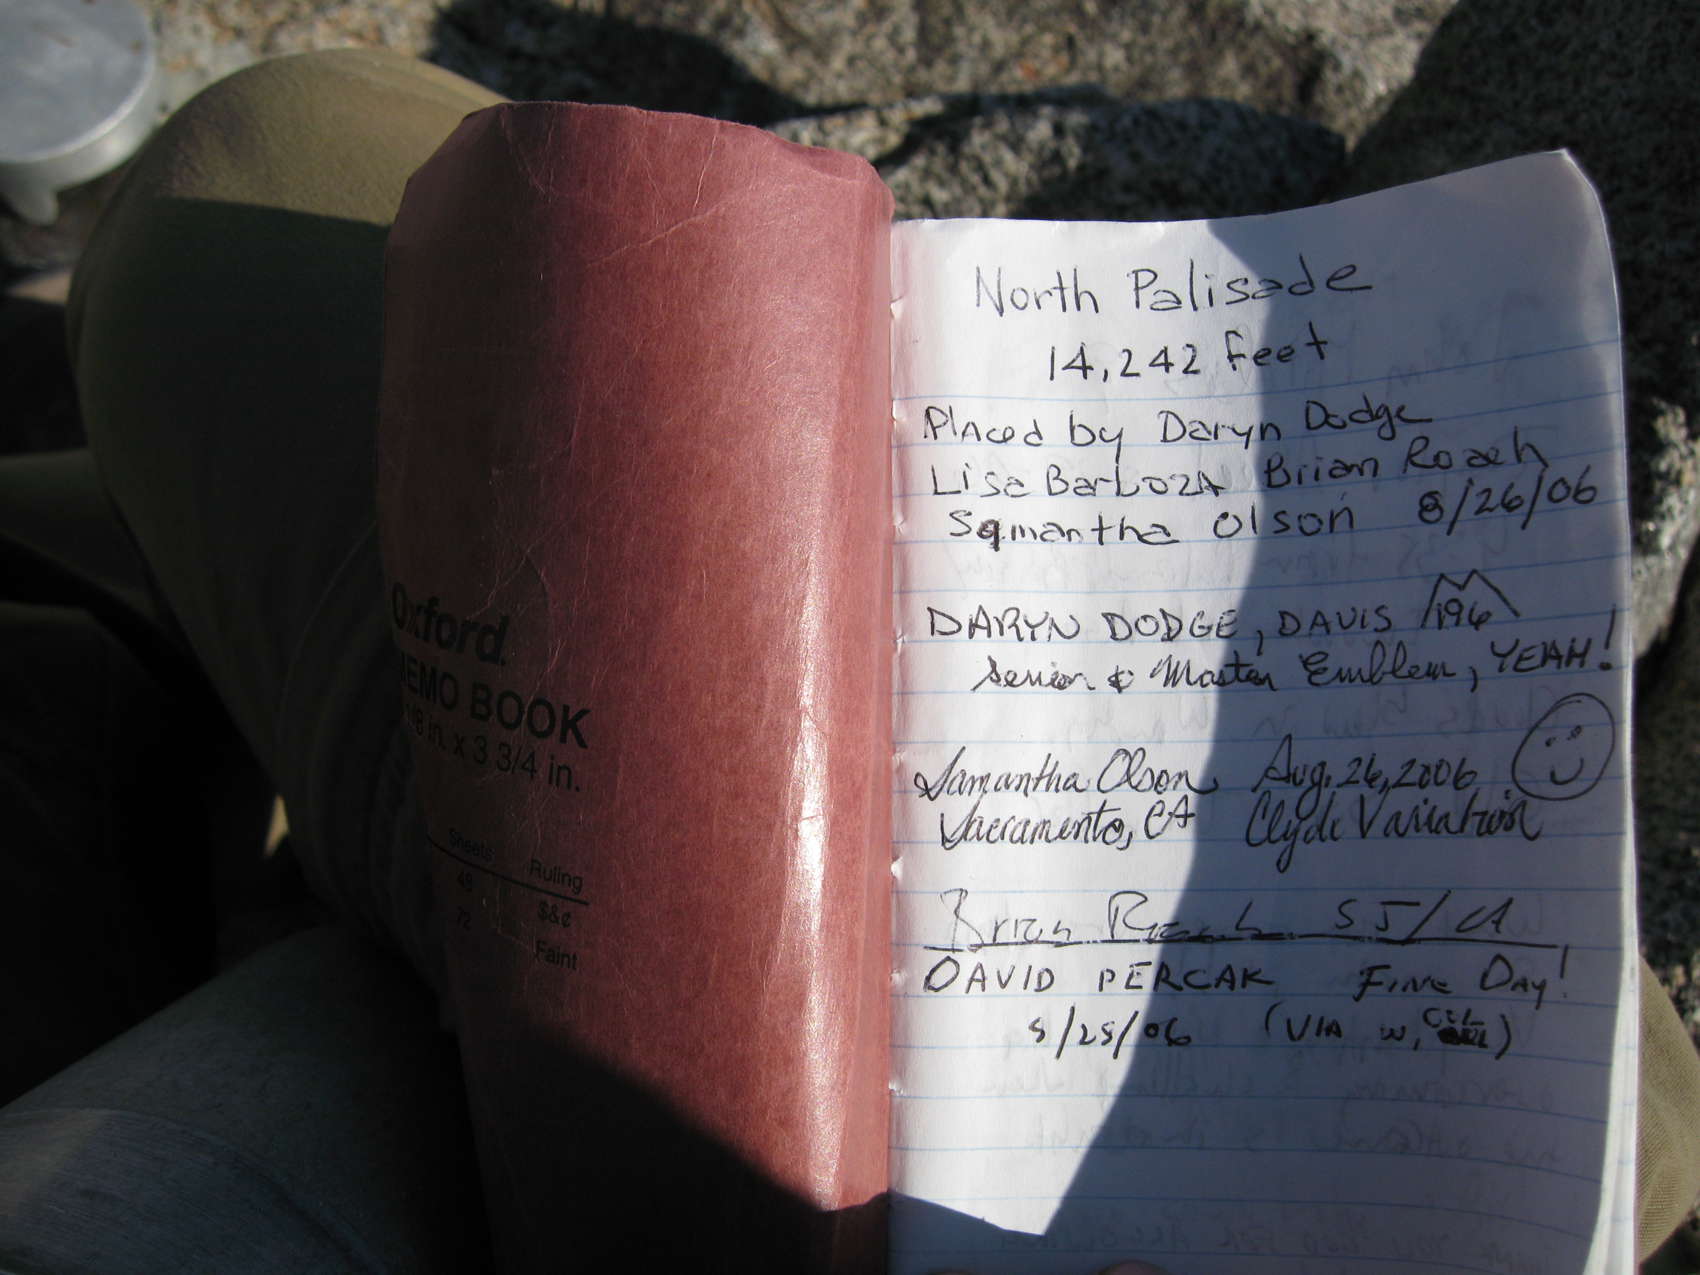 Oxford.
MEMO BOOK
1/8 in. x 3 3/4 in.
Sheets Ruling
48 $&¢
72 Faint
North Palisade
14,242 Feet
Placed by Daryn Dodge
Lisa Barboza Brian Roach
Samantha Olson 8/26/06
DARYN DODGE, DAVIS 196
Senior & Master Emblem, YEAH!
Samantha Olson Aug. 26, 2006
Sacramento, CA Clyde Variation
Brian Roach SJ/CA
DAVID PERCAK FINE DAY!
8/28/06 (VIA W,